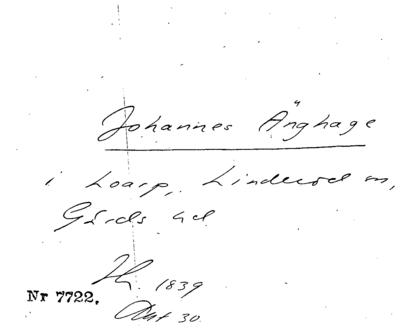 Johannes Änghage
i Loarp, Linderöd sn,
Gärds hd
1839
Nr 7722.
Okt 30.